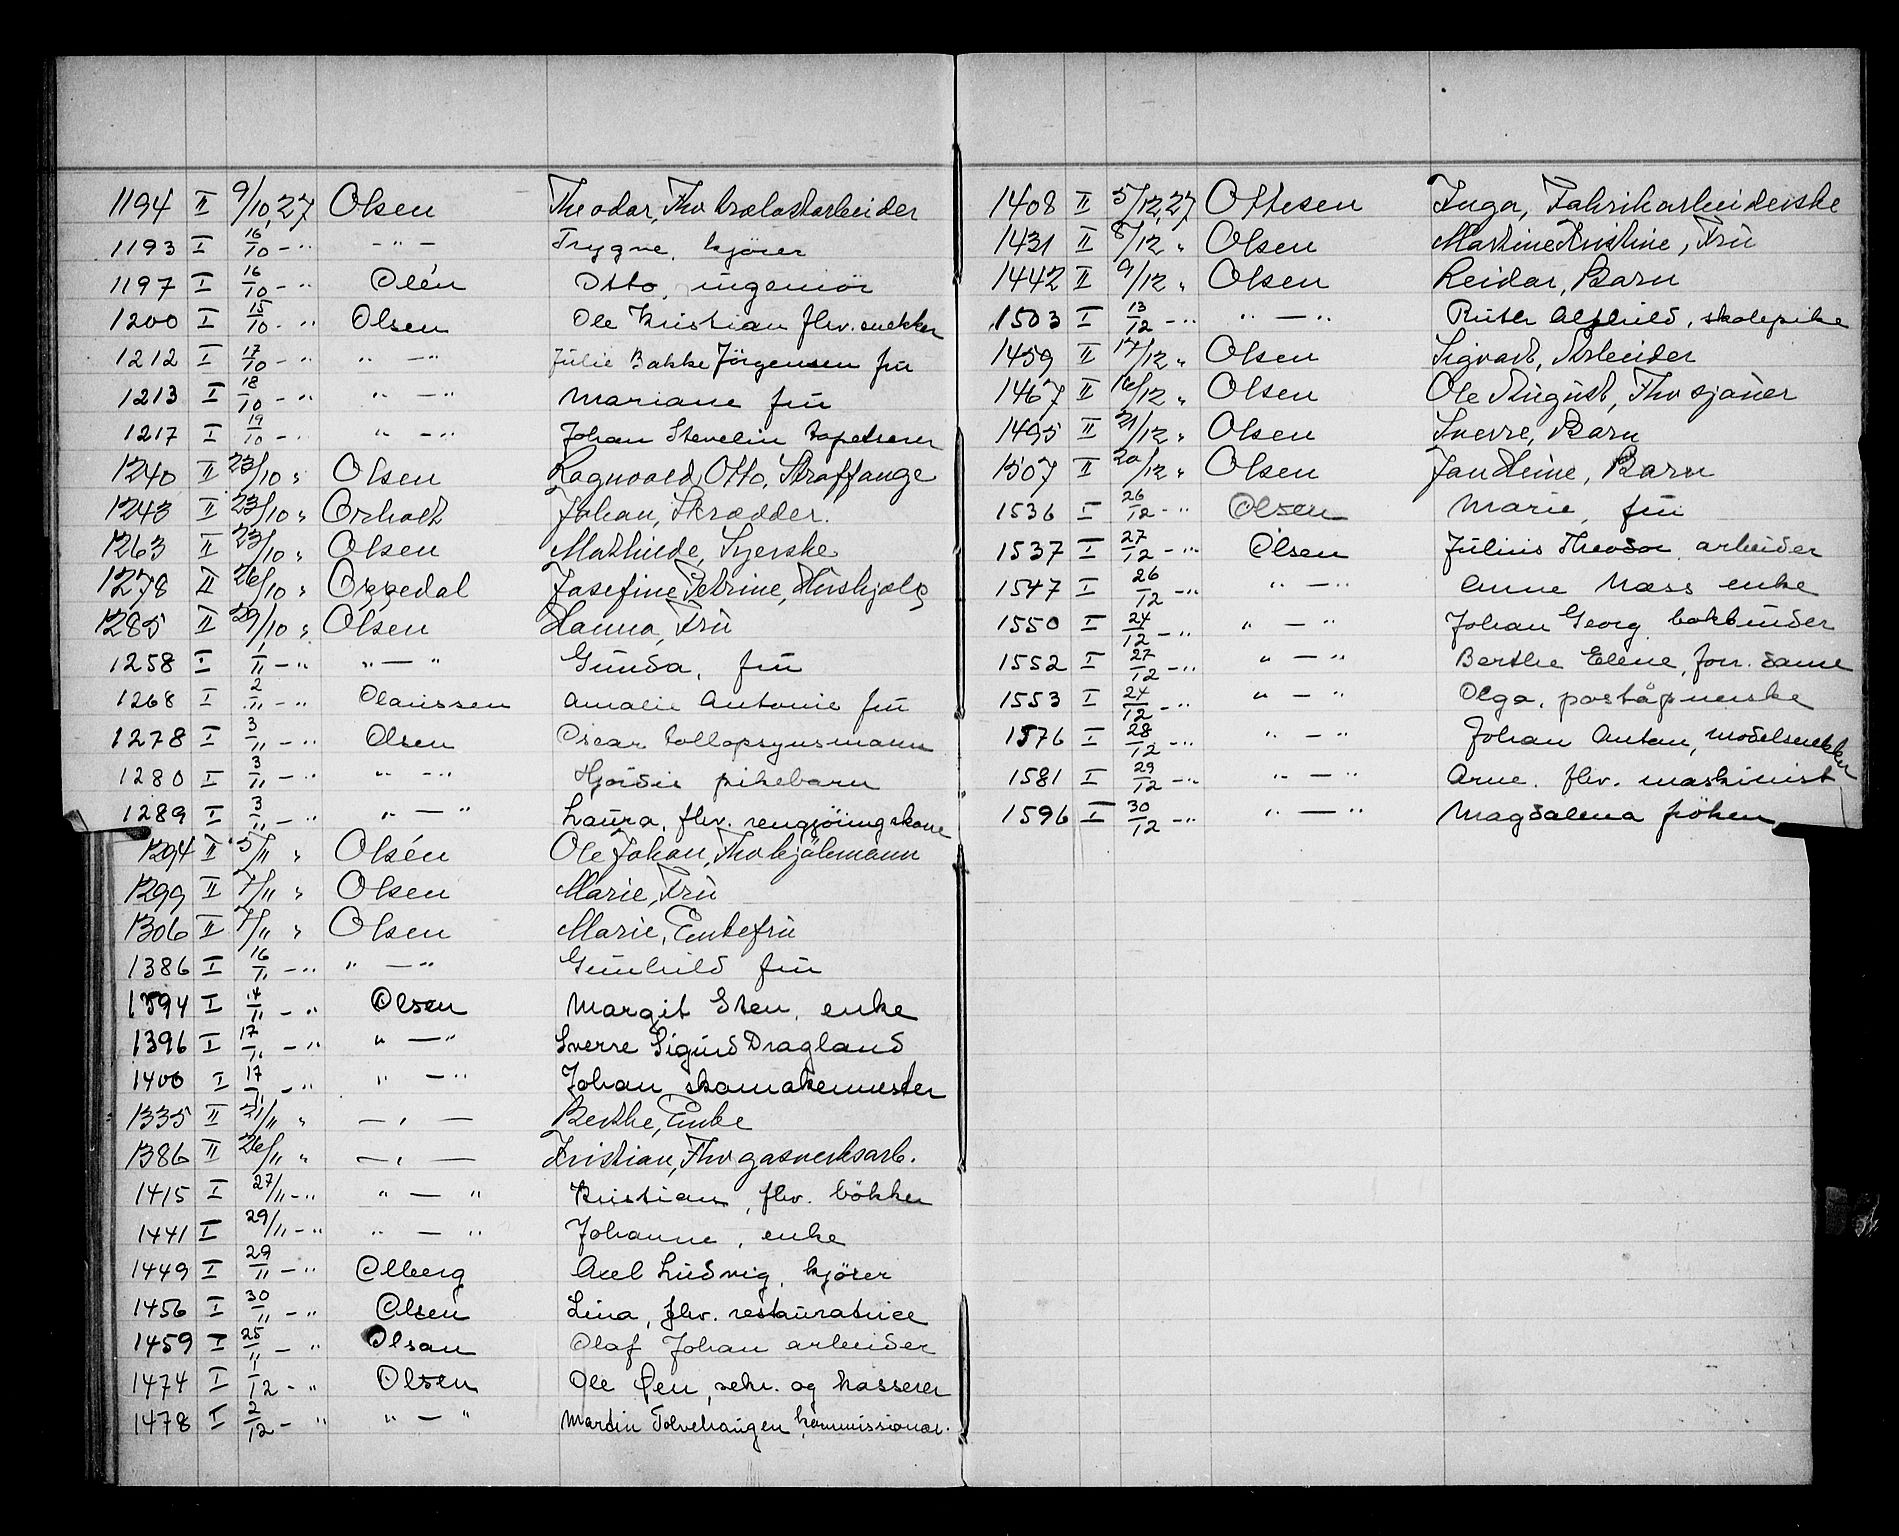 1194 II 9/10,27 Olsen Theodor, Fhv trælastarbeider
1193 I 16/10 - " - " - Trygve, kjører
1197 I 16/10 - " Olén Otto, ingeniör
1200 I 15/10 - " Olsen Ole Kristian fhv. snekker
1212 I 17/10 - " " - " Julie Bakke Jörgensen fru
1213 I 18/10 - " " - " Mariane fru
1217 I 19/10 - " " - " Johan Stevelin tapetserer
1240 II 23/10 " Olsen Ragnvald Otto, Straffange
1243 II 23/10 " Orholt Johan, Skrædder.
1263 II 23/10 " Olsen Mathilde, Syerske
1278 II 26/10 " Oppedal Josefine Petrine, Hushjelp
1285 II 29/10 " Olsen Hanna, Fru
1258 I 1/11 - " " - " Gunda, fru
1268 I 2/11 - " Olaussen Amalie Antonie fru
1278 I 3/11 - " Olsen Oscar tollopsynsmann
1280 I 3/11 - " " - " Hjördis pikebarn
1289 I 3/11 - " " - " Laura, fhv. rengjöringskone
1294 II 5/11 " Olsén Ole Johan, Fhv kjölmann
1299 II 7/11 " Olsen Marie, Fru
1306 II 7/11 " Olsen Marie, Enkefru
1386 I 16/11 - " " - " Gunhild fru
1394 I 14/11 - " Olsen Margit Sten, enke
1396 I 17/11 - " " - " Sverre Sigurd Dragland
1400 I 17/11 - " " - " Johan, skomakermester
1335 II 21/11 " - " - Berthe, Enke
1386 II 26/11 " - " - Kristian, Fhv gasverksarb.
1415 I 27/11 - " " - " Kristian, fhv. bökker
1441 I 29/11 - " " - " Johanne, enke
1449 I 29/11 - " Olberg Axel Ludvig, kjörer
1456 I 30/11 - " Olsen Lina, fhv. restauratrice
1459 I 25/11 - " Olsan Olaf Johan arbeider
1474 I 1/12 - " Olsen Ole Øen, sekr. og kasserer
1478 I 2/12 - " " - " Martin Tolvehaugen kommissionær.
1408 II 5/12,27 Ottesen Inga, Fabrikarbeiderske
1431 II 8/12 " Olsen Martine Kristine, Fru
1442 II 9/12 " Olsen Reidar, Barn
1503 I 13/12 - " " - " Ruth Alfhild, skolepike
1459 II 14/12 " Olsen Sigvart, Arbeider
1467 II 16/12 " Olsen Ole August, Fhv sjauer
1495 II 21/12 " Olsen Sverre, Barn
1507 II 20/12 " Olsen Jan Heine, Barn
1536 I 26/12 - " Olsen Marie, fru
1537 I 27/12 - " Olsen Julius Theodor arbeider
1547 I 26/12 - " " - " Anne Næss enke
1550 I 24/12 - " " - " Johan Georg bokbinder
1552 I 27/12 - " " - " Berthe Elene, forr. dame
1553 I 24/12 - " " - " Olga, poståpnerske
1576 I 28/12 - " " - " Johan Anton, modelsnekker
1581 I 29/12 - " " - " Arne. fhv. maskinist
1596 I 30/12 - " " - " Magdalena fröken